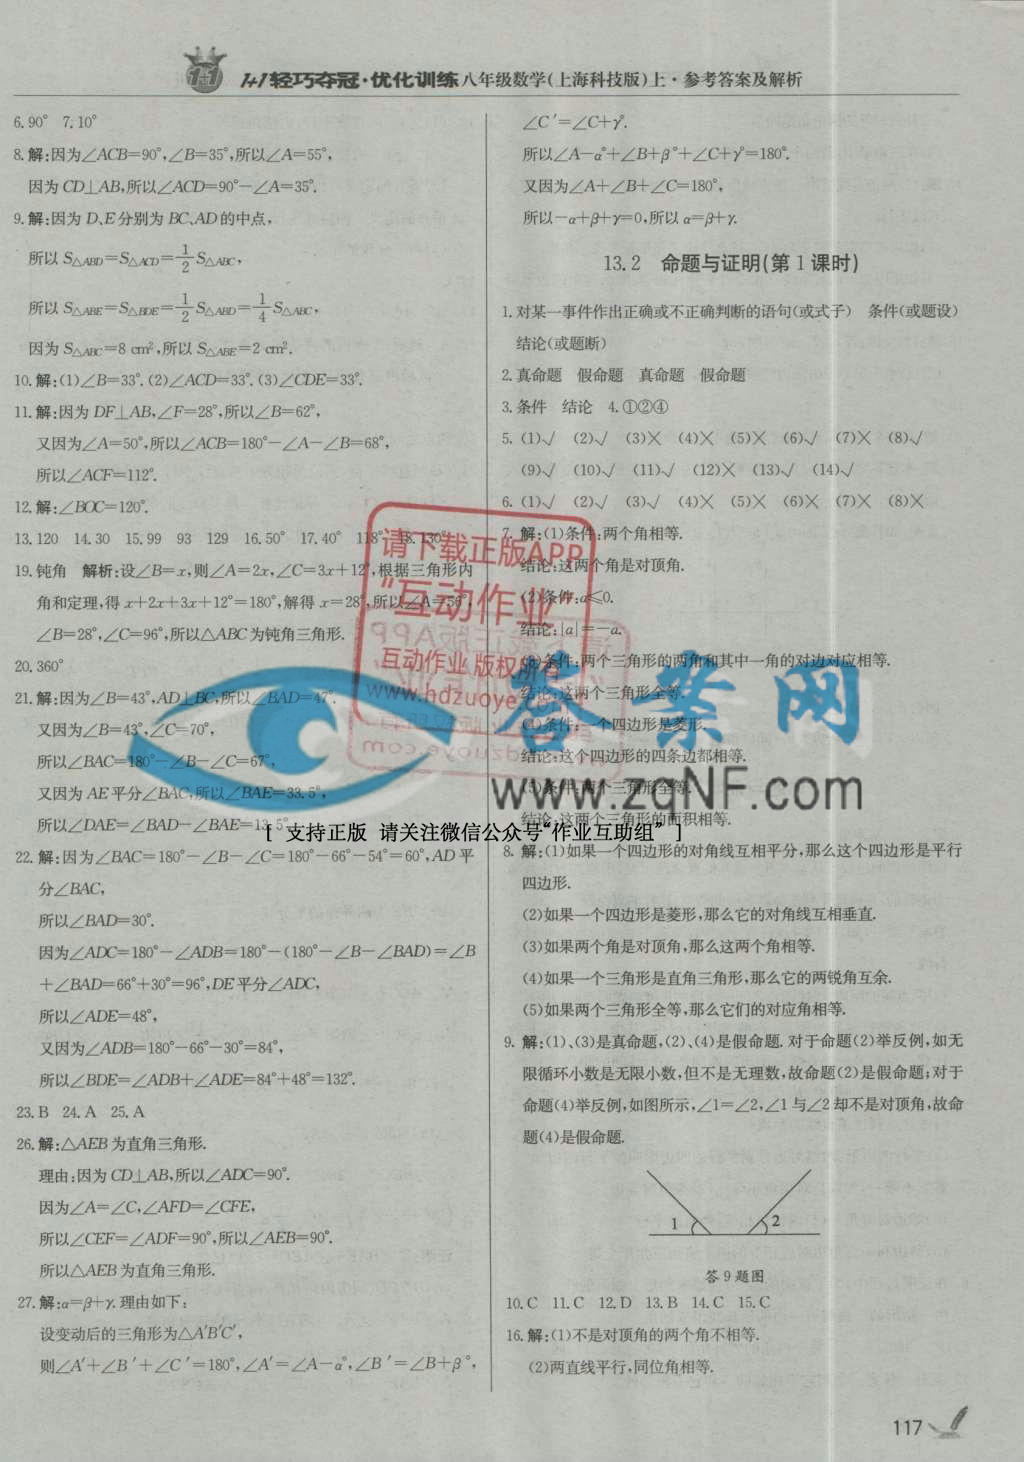 1+1轻巧夺冠·优化训练八年级数学(上海科技版)上·参考答案及解析
6.90° 7.10°
8.解:因为∠ACB=90°,∠B=35°,所以∠A=55°,
因为CD⊥AB,所以∠ACD=90°-∠A=35°.
9.解:因为D、E分别为BC、AD的中点,
所以S△ABD=S△ACD=1/2 S△ABC,
所以S△ABE=S△BDE=1/2 S△ABD=1/4 S△ABC,
因为S△ABC=8 cm²,所以S△ABE=2 cm².
10.解:(1)∠B=33°.(2)∠ACD=33°.(3)∠CDE=33°.
11.解:因为DF⊥AB,∠F=28°,所以∠B=62°,
又因为∠A=50°,所以∠ACB=180°-∠A-∠B=68°,
所以∠ACF=112°.
12.解:∠BOC=120°.
13.120 14.30 15.99 93 129 16.50° 17.40° 118° 18.130°
19.钝角 解析:设∠B=x,则∠A=2x,∠C=3x+12°,根据三角形内
角和定理,得x+2x+3x+12°=180°,解得x=28°,所以∠A=56°,
∠B=28°,∠C=96°,所以△ABC为钝角三角形.
20.360°
21.解:因为∠B=43°,AD⊥BC,所以∠BAD=47°.
又因为∠B=43°,∠C=70°,
所以∠BAC=180°-∠B-∠C=67°,
又因为AE平分∠BAC,所以∠BAE=33.5°,
所以∠DAE=∠BAD-∠BAE=13.5°.
22.解:因为∠BAC=180°-∠B-∠C=180°-66°-54°=60°,AD平
分∠BAC,
所以∠BAD=30°.
因为∠ADC=180°-∠ADB=180°-(180°-∠B-∠BAD)=∠B
+∠BAD=66°+30°=96°,DE平分∠ADC,
所以∠ADE=48°,
又因为∠ADB=180°-66°-30°=84°,
所以∠BDE=∠ADB+∠ADE=84°+48°=132°.
23.B 24.A 25.A
26.解:△AEB为直角三角形.
理由:因为CD⊥AB,所以∠ADC=90°.
因为∠A=∠C,∠AFD=∠CFE,
所以∠CEF=∠ADF=90°,所以∠AEB=90°.
所以△AEB为直角三角形.
27.解:α=β+γ.理由如下:
设变动后的三角形为△A′B′C′,
则∠A′+∠B′+∠C′=180°,∠A′=∠A-α°,∠B′=∠B+β°,
∠C′=∠C+γ°.
所以∠A-α°+∠B+β°+∠C+γ°=180°.
又因为∠A+∠B+∠C=180°,
所以-α+β+γ=0,所以α=β+γ.
13.2 命题与证明(第1课时)
1.对某一事件作出正确或不正确判断的语句(或式子) 条件(或题设)
结论(或题断)
2.真命题 假命题 真命题 假命题
3.条件 结论 4.①②④
5.(1)√ (2)√ (3)× (4)× (5)× (6)√ (7)× (8)√
(9)√ (10)√ (11)√ (12)× (13)√ (14)√
6.(1)√ (2)√ (3)√ (4)× (5)× (6)× (7)× (8)×
7.解:(1)条件:两个角相等.
结论:这两个角是对顶角.
(2)条件:a≤0.
结论:|a|=-a.
(3)条件:两个三角形的两角和其中一角的对边对应相等.
结论:这两个三角形全等.
(4)条件:一个四边形是菱形.
结论:这个四边形的四条边都相等.
(5)条件:两个三角形全等.
结论:这两个三角形的面积相等.
8.解:(1)如果一个四边形的对角线互相平分,那么这个四边形是平行
四边形.
(2)如果一个四边形是菱形,那么它的对角线互相垂直.
(3)如果两个角是对顶角,那么这两个角相等.
(4)如果一个三角形是直角三角形,那么它的两锐角互余.
(5)如果两个三角形全等,那么它们的对应角相等.
9.解:(1)、(3)是真命题,(2)、(4)是假命题.对于命题(2)举反例,如无
限循环小数是无限小数,但不是无理数,故命题(2)是假命题;对于
命题(4)举反例,如图所示,∠1=∠2,∠1与∠2却不是对顶角,故命
题(4)是假命题.
1 2
答9题图
10.C 11.C 12.D 13.B 14.C 15.C
16.解:(1)不是对顶角的两个角不相等.
(2)两直线平行,同位角相等.
117
请下载正版APP
"互动作业"
互动作业 版权所有
www.hdzuoye.com
答案网
www.zqNF.com
[ 支持正版 请关注微信公众号"作业互助组" ]